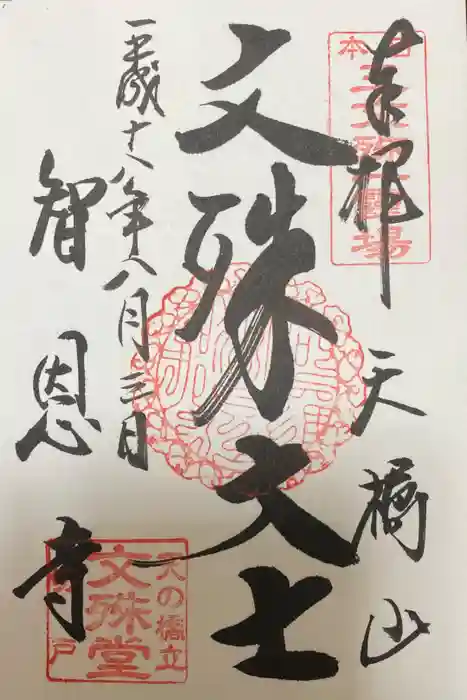 奉拝
天橋山
文殊大士
平成十八年八月三日
智恩寺
日本三文殊霊場
天の橋立
文殊堂